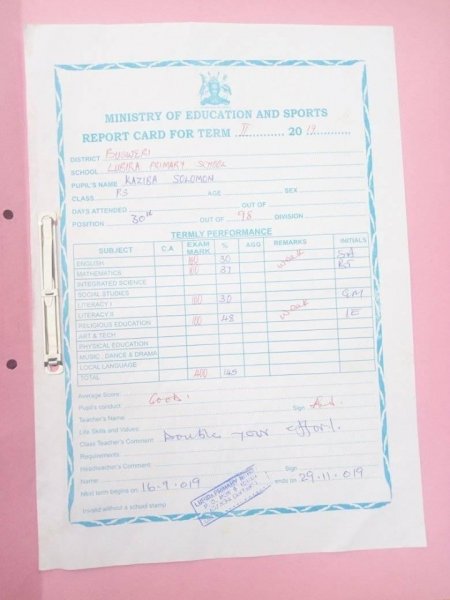 MINISTRY OF EDUCATION AND SPORTS
REPORT CARD FOR TERM II 2019
DISTRICT BUGWERI
SCHOOL LUBIRA PRIMARY SCHOOL
PUPIL'S NAME KAZIBA SOLOMON
CLASS P.3 AGE SEX
DAYS ATTENDED OUT OF
POSITION 30th OUT OF 98 DIVISION
TERMLY PERFORMANCE
SUBJECT C.A EXAM MARK % AGG REMARKS INITIALS
ENGLISH 100 30 weak
MATHEMATICS 100 37
INTEGRATED SCIENCE
SOCIAL STUDIES
LITERACY I 100 30 GM
LITERACY II weak
RELIGIOUS EDUCATION 100 48 IE
ART & TECH
PHYSICAL EDUCATION
MUSIC, DANCE & DRAMA
LOCAL LANGUAGE
TOTAL 400 145
Average Score:
Pupil's conduct Good.
Teacher's Name: Sign
Life Skills and Values:
Class Teacher's Comment Double your effort.
Requirements:
Headteacher's Comment
Name: Sign
Next term begins on 16.9.019 ends on 29.11.019
Invalid without a school stamp